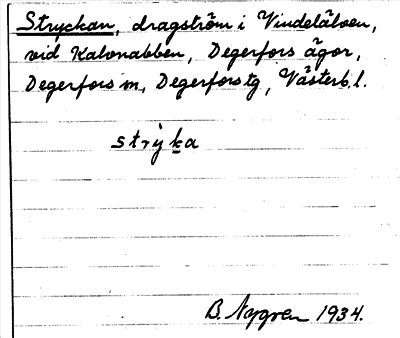 Stryckan, dragström i Vindelälven,
vid Kalvnabben, Degerfors ägor,
Degerfors m, Degerfors tg, Västerb. l.
strỳka
B. Nygren 1934.